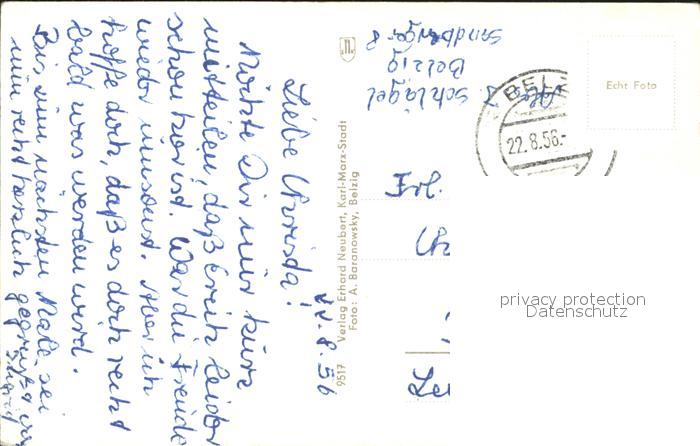 22.8.56
Liebe Christa!
Möchte Dir nur kurz
mitteilen, daß Erich leider
schon hier ist. War die Freude
wieder umsonst. Aber ich
hoffe doch, daß es doch recht
bald was werden wird.
Bis zum nächsten Male sei
nun recht herzlich gegrüßt von
Ingrid
9517 Verlag Erhard Neubert, Karl-Marx-Stadt
Foto: A. Baranowsky, Belzig
Abs. I. Schlägel
Belzig
Sandbergerstr. 8
BELZ
22.8.56.-
Echt Foto
Frl.
Chr
Lei
privacy protection
Datenschutz